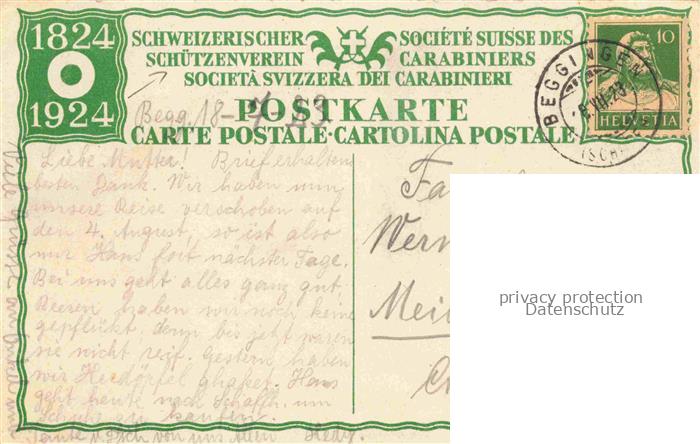 1824
1924
SCHWEIZERISCHER
SCHÜTZENVEREIN
SOCIÉTÉ SUISSE DES
CARABINIERS
SOCIETÀ SVIZZERA DEI CARABINIERI
POSTKARTE
CARTE POSTALE · CARTOLINA POSTALE
10
HELVETIA
BEGGINGEN
Begg. 18
Liebe Mutter! Brief erhalten
besten Dank. Wir haben nun
unsere Reise verschoben auf
den 4. August, so ist also
nur Hans fort nächster Tage.
Bei uns geht alles ganz gut
Beeren haben wir noch keine
gepflückt denn bis jetzt waren
sie nicht reif. Gestern haben
wir Herdöpfel ghaket. Hans
geht heute nach Schaffh. um
Schuhe zu kaufen.
von uns allen Hedy.
Wern
Mei
privacy protection
Datenschutz